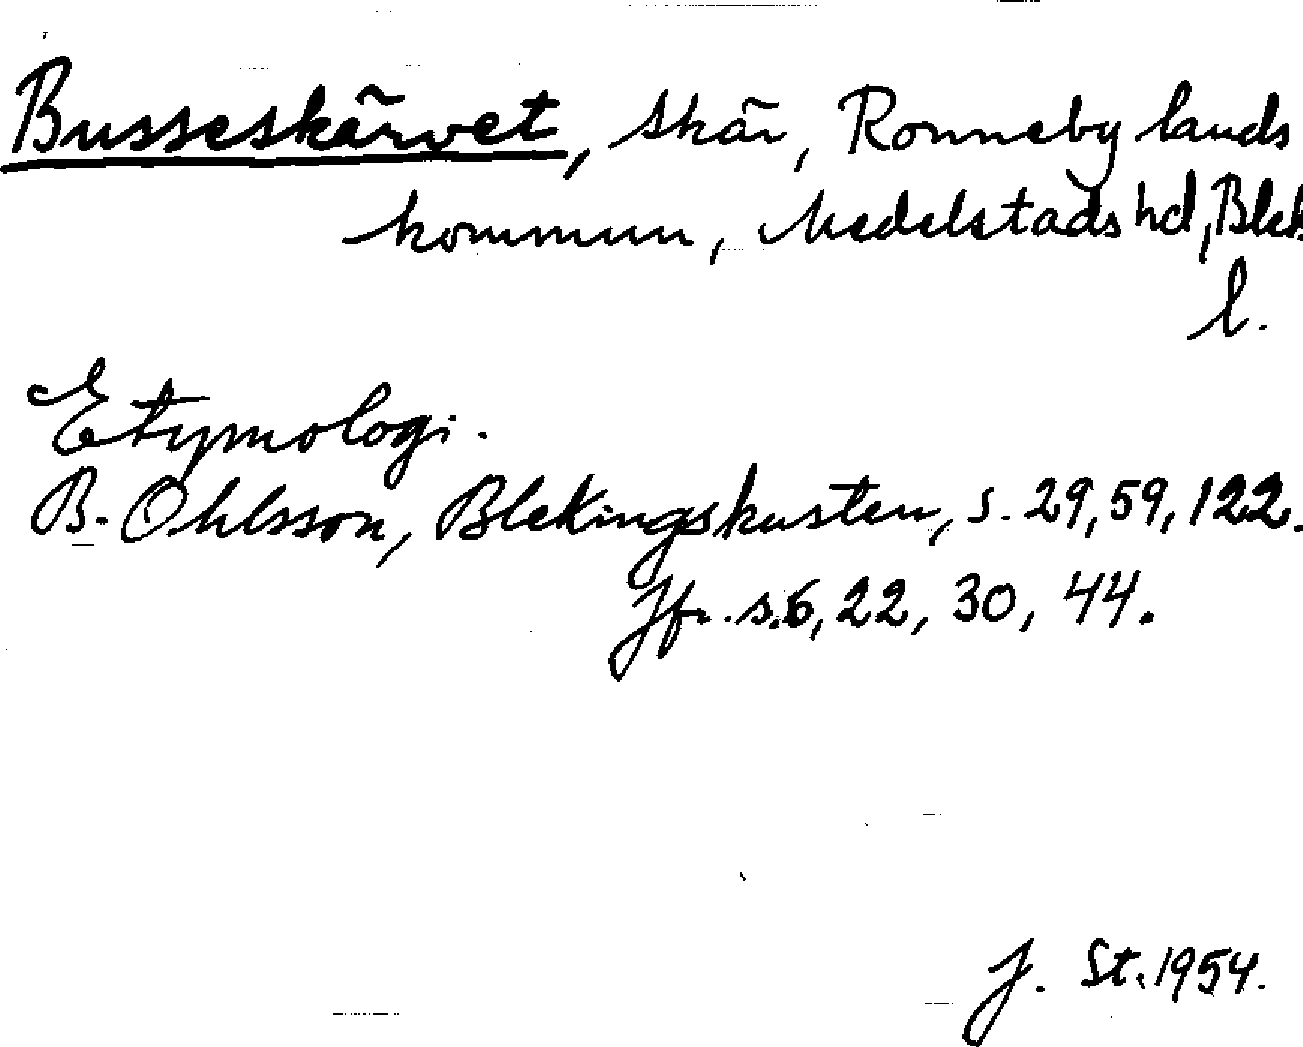 Busseskärvet, skär, Ronneby lands
kommun, Medelstads hd, Blek.
l.
Etymologi.
B. Ohlsson, Blekingskusten, s. 29, 59, 122.
Jfr. s. 6, 22, 30, 44.
J. St. 1954.